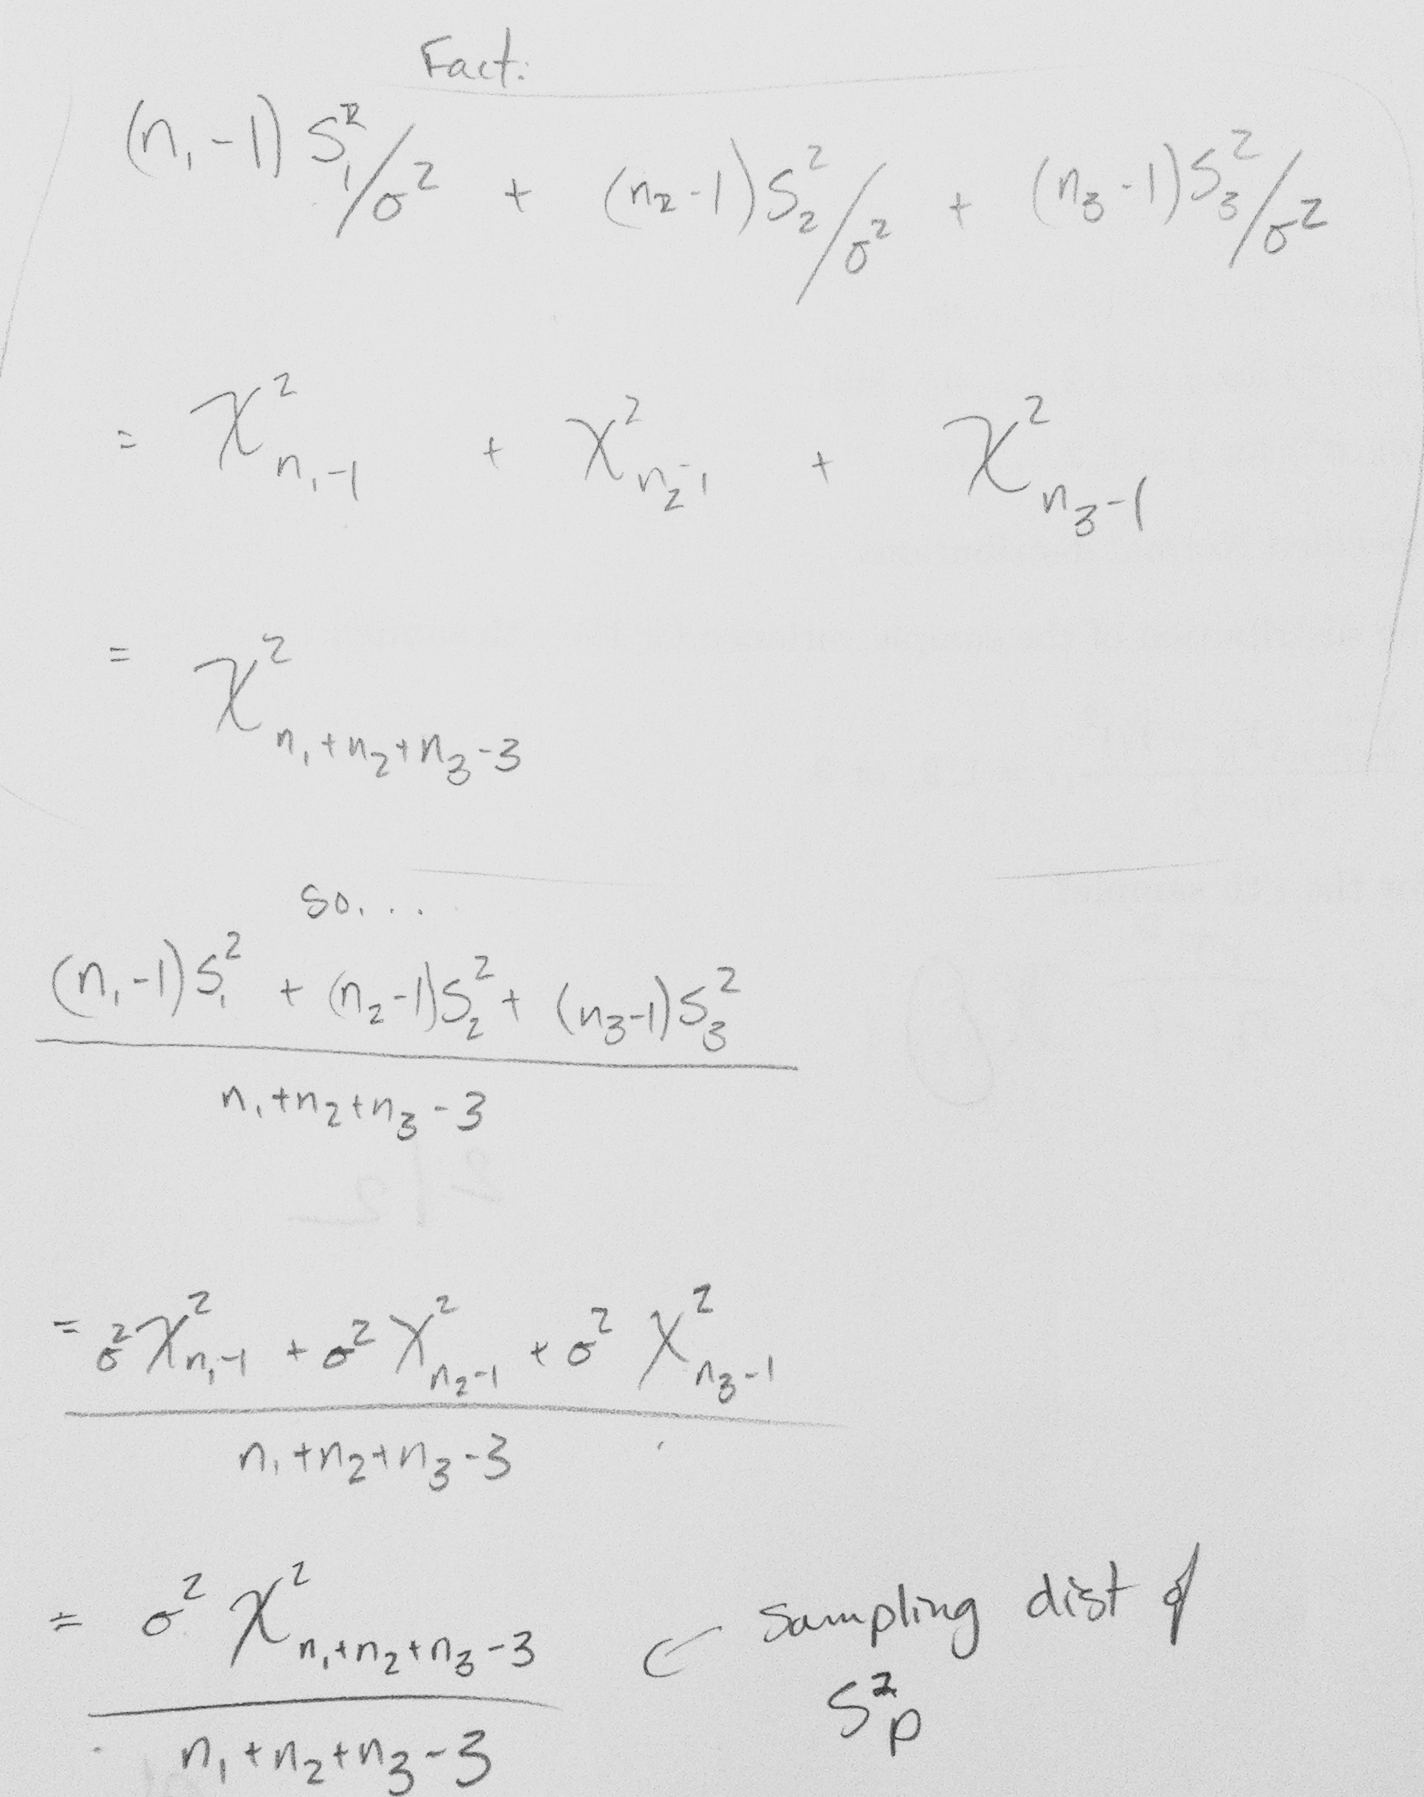 Fact:
(n₁-1) S₁²/σ² + (n₂-1) S₂²/σ² + (n₃-1) S₃²/σ²
= χ²ₙ₁₋₁ + χ²ₙ₂₋₁ + χ²ₙ₃₋₁
= χ²ₙ₁₊ₙ₂₊ₙ₃₋₃
so...
(n₁-1)S₁² + (n₂-1)S₂² + (n₃-1)S₃²
n₁+n₂+n₃-3
= σ²χ²ₙ₁₋₁ + σ²χ²ₙ₂₋₁ + σ²χ²ₙ₃₋₁
n₁+n₂+n₃-3
= σ²χ²ₙ₁₊ₙ₂₊ₙ₃₋₃ ← sampling dist of
S²p
n₁+n₂+n₃-3